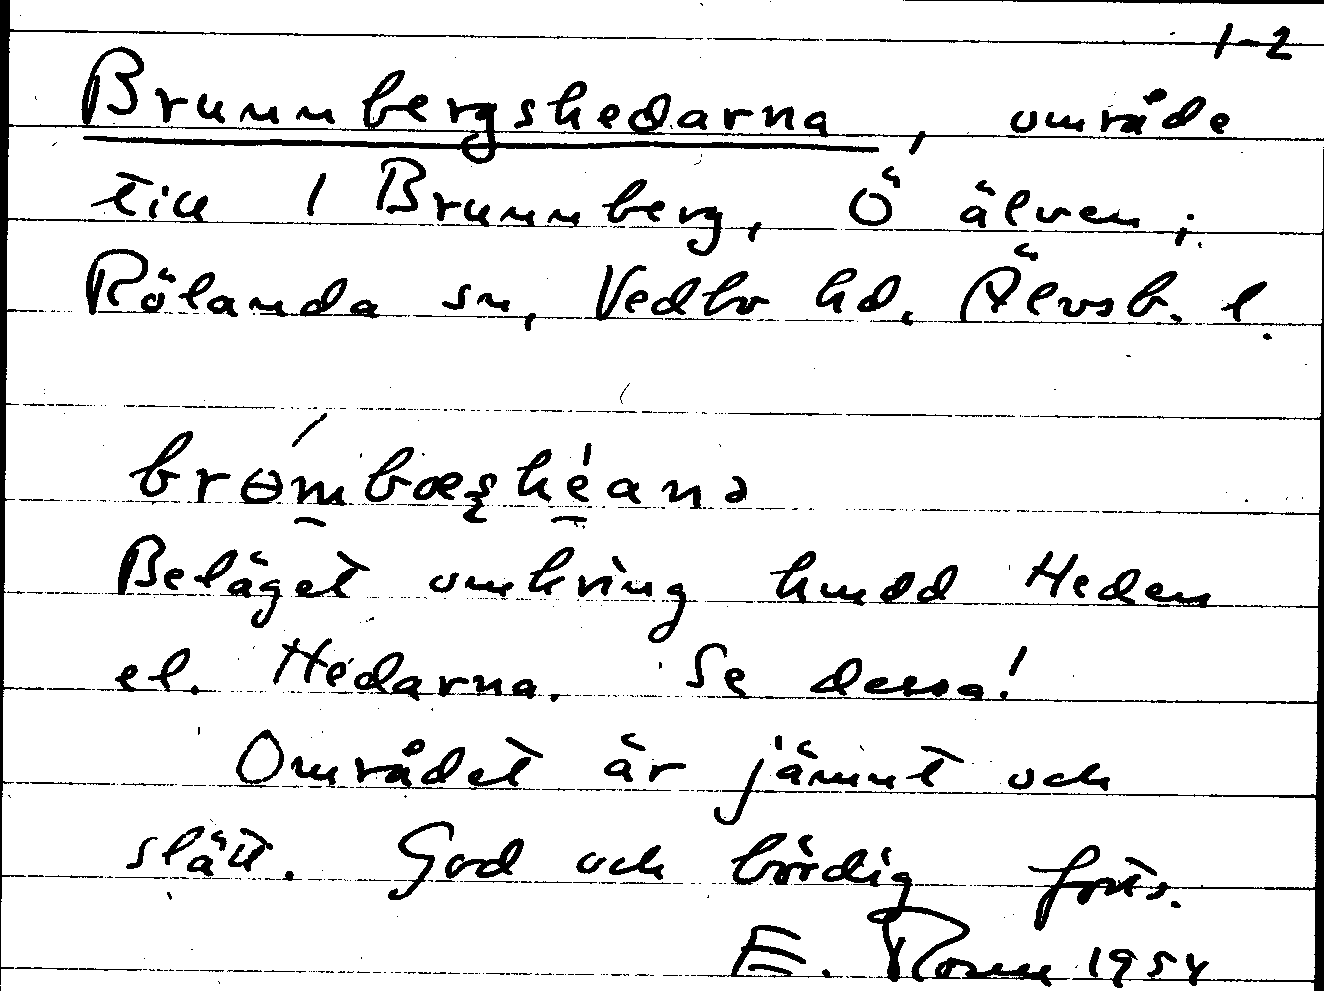 1-2
Brunnbergshedarna, område
till 1 Brunnberg, Ö älven,
Rölanda sn, Vedbo hd. Älvsb. l.
Beläget omkring hmdd Heden
el. Hedarna. Se dessa!
Området är jämnt och
slätt. God och bördig forts.
E. Rosell 1954